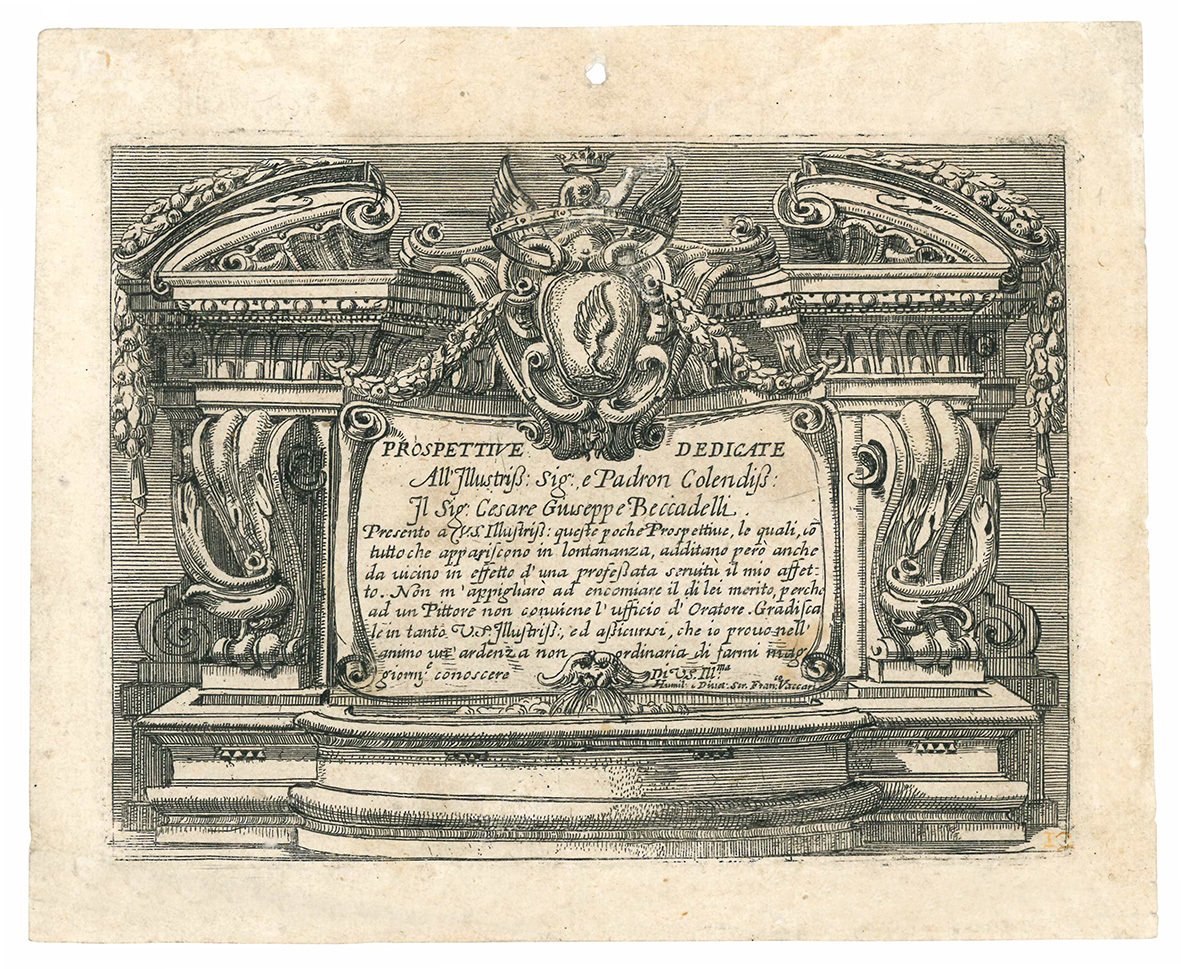 PROSPETTIVE DEDICATE
All' Illustriss: Sig: e Padron Colendiss:
Il Sig: Cesare Giuseppe Beccadelli.
Presento a V.S. Illustriss: queste poche Prospettive, le quali, cō
tutto che appariscono in lontananza, additano però anche
da vicino in effetto d'una professata servitù il mio affet-
to. Non m'appigliarò ad encomiare il di lei merito, perche
ad un Pittore non conviene l'ufficio d'Oratore. Gradisca
le in tanto V.S. Illustriss:, ed assicurisi, che io provo nell'
animo un' ardenza non ordinaria di farmi mag
giormẽ conoscere Di V.S. Ill.ma
Humil: e Divot: Ser. Fran:co Vaccari